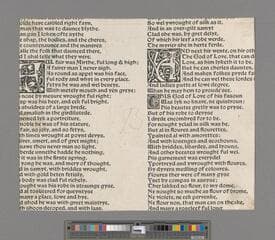 man that was to daunce blythe.
gan I loken ofte sythe
shap, the bodies, and the cheres,
countenaunce and the maneres
alle the folk that daunced there,
I shal telle what they were.
UL fair was Mirthe, ful long & high;
A fairer man I never sigh.
As round as appel was his face,
Ful rody and whyt in every place.
Fetys he was and wel beseye,
With metely mouth and greye;
nose by mesure wrought ful right;
was his heer, and eek ful bright.
shuldres of a large brede,
smalish in the girdilstede.
semed lyk a portreiture,
noble he was of his stature,
fair, so joly, and so fetys,
limes wrought at poynt devys,
and of gret might;
sawe thou never man so light.
berde unnethe hadde he nothing,
it was in the firste spring.
yong he was, and mery of thought,
in samyt, with briddes wrought,
with gold beten fetisly,
body was clad ful richely.
wrought was his robe in straunge gyse,
al toslitered for queyntyse
many a place, lowe and hye.
shod he was with greet maistrye,
shoon decoped, and with laas.
So wel ywrought of silk as it.
And in an over-gilt samyt
Clad she was, by gret delyt,
Of which hir leef a robe werde,
The myrier she in herte ferde.
ND next hir wente, on hir other
The God of Love, that can
Love, as him lyketh it be.
But he can cherles daunten,
And maken folkes pryde fallen.
And he can wel these lordes
And ladies putte at lowe degree,
Whan he may hem to proude see.
THIS God of Love of his fasoun
Was lyk no knave, ne quistroun;
His beautee gretly was to pryse.
But of his robe to devyse
I drede encombred for to be.
For nought yclad in silk was he,
But al in floures and flourettes,
Ypainted al with amorettes;
And with losenges and scochouns,
With briddes, libardes, and lyouns,
And other beestes wrought ful wel.
His garnement was everydel
Yportreyd and ywrought with floures,
By dyvers medling of coloures.
Floures ther were of many gyse
Yset by compas in assyse;
Ther lakked no flour, to my dome,
Ne nought so muche as flour of brome,
Ne violete, ne eek pervenke,
Ne flour non, that man can on thenke,
And many a